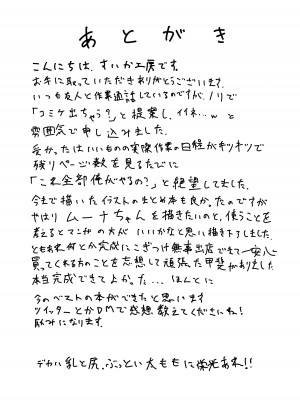 あとがき
こんにちは、すいか工房です。
お手に取っていただきありがとうございます。
いつも友人と作業通話しているのですが、ノリで
「コミケ出ちゃう?」と提案し、イイネ…w と
雰囲気で申し込みました。
受かったはいいものの実際作業の日程がギリギリで
残りページ数を見るたびに
「これ全部俺がやるの?」と絶望してました。
今まで描いたイラストのまとめ本も良かったのですが
やはりムーナちゃんを描きたいのと、使うことを
考えるとマンガの方がいいかなと思い描き下ろしました。
ともあれ何とか完成にこぎつけ無事出店できて一安心
買ってくれる方のことを妄想して頑張った甲斐がありました
本当完成できてよかった… ほんとに
今のベストの本ができたと思います
ツイッターとかDMで感想教えてくださいね!
励みになります。
デカい乳と尻、ぶっとい太ももに栄光あれ!!